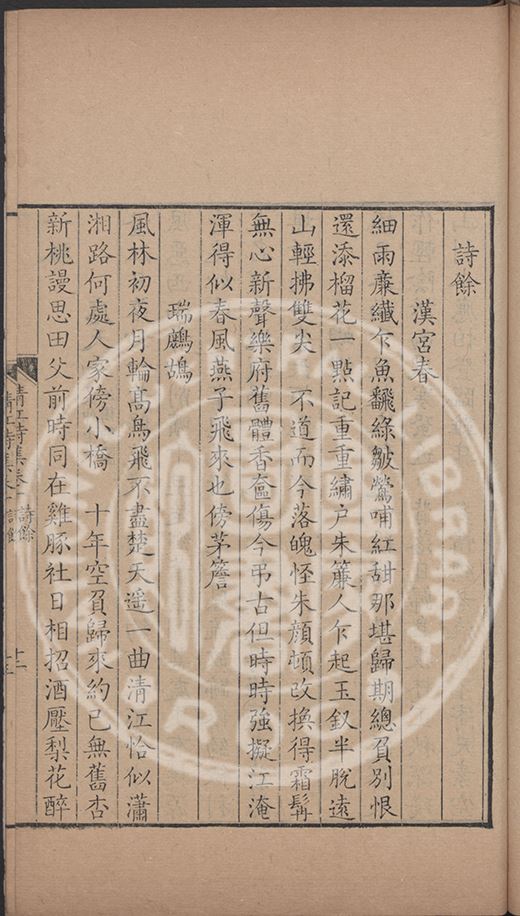 詩餘
漢宮春
細雨廉纖乍魚飜綠皺鶯哺紅甜那堪歸期總負別恨
還添榴花一點記重重繡户朱簾人乍起玉釵半脫遠
山輕拂雙尖　不道而今落魄怪朱顏頓改換得霜髯
無心新聲樂府舊體香奩傷今弔古但時時強擬江淹
渾得似春風燕子飛來也傍茅簷
瑞鷓鴣
風林初夜月輪髙鳥飛不盡楚天遥一曲清江恰似瀟
湘路何處人家傍小橋　十年空負歸來約已無舊杏
新桃謾思田父前時同在雞豚社日相招酒壓梨花醉
清江詩集卷十　詩餘